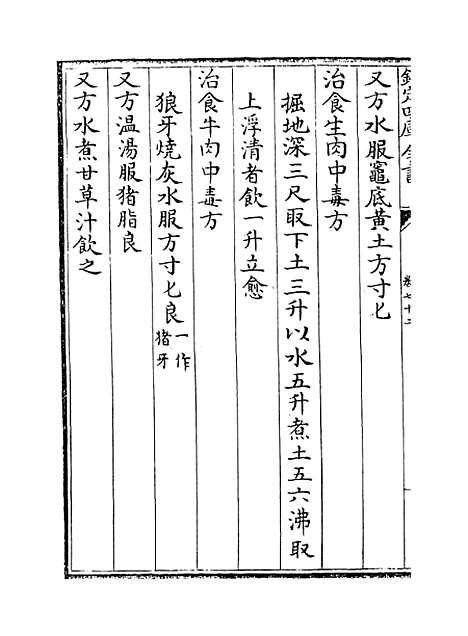 欽定四庫全書
卷七十二
又方水服竈底黄土方寸匕
治食生肉中毒方
掘地深三尺取下土三升以水五升煮土五六沸取
上浮清者飲一升立愈
治食牛肉中毒方
狼牙燒灰水服方寸匕良一作猪牙
又方温湯服猪脂良
又方水煮甘草汁飲之